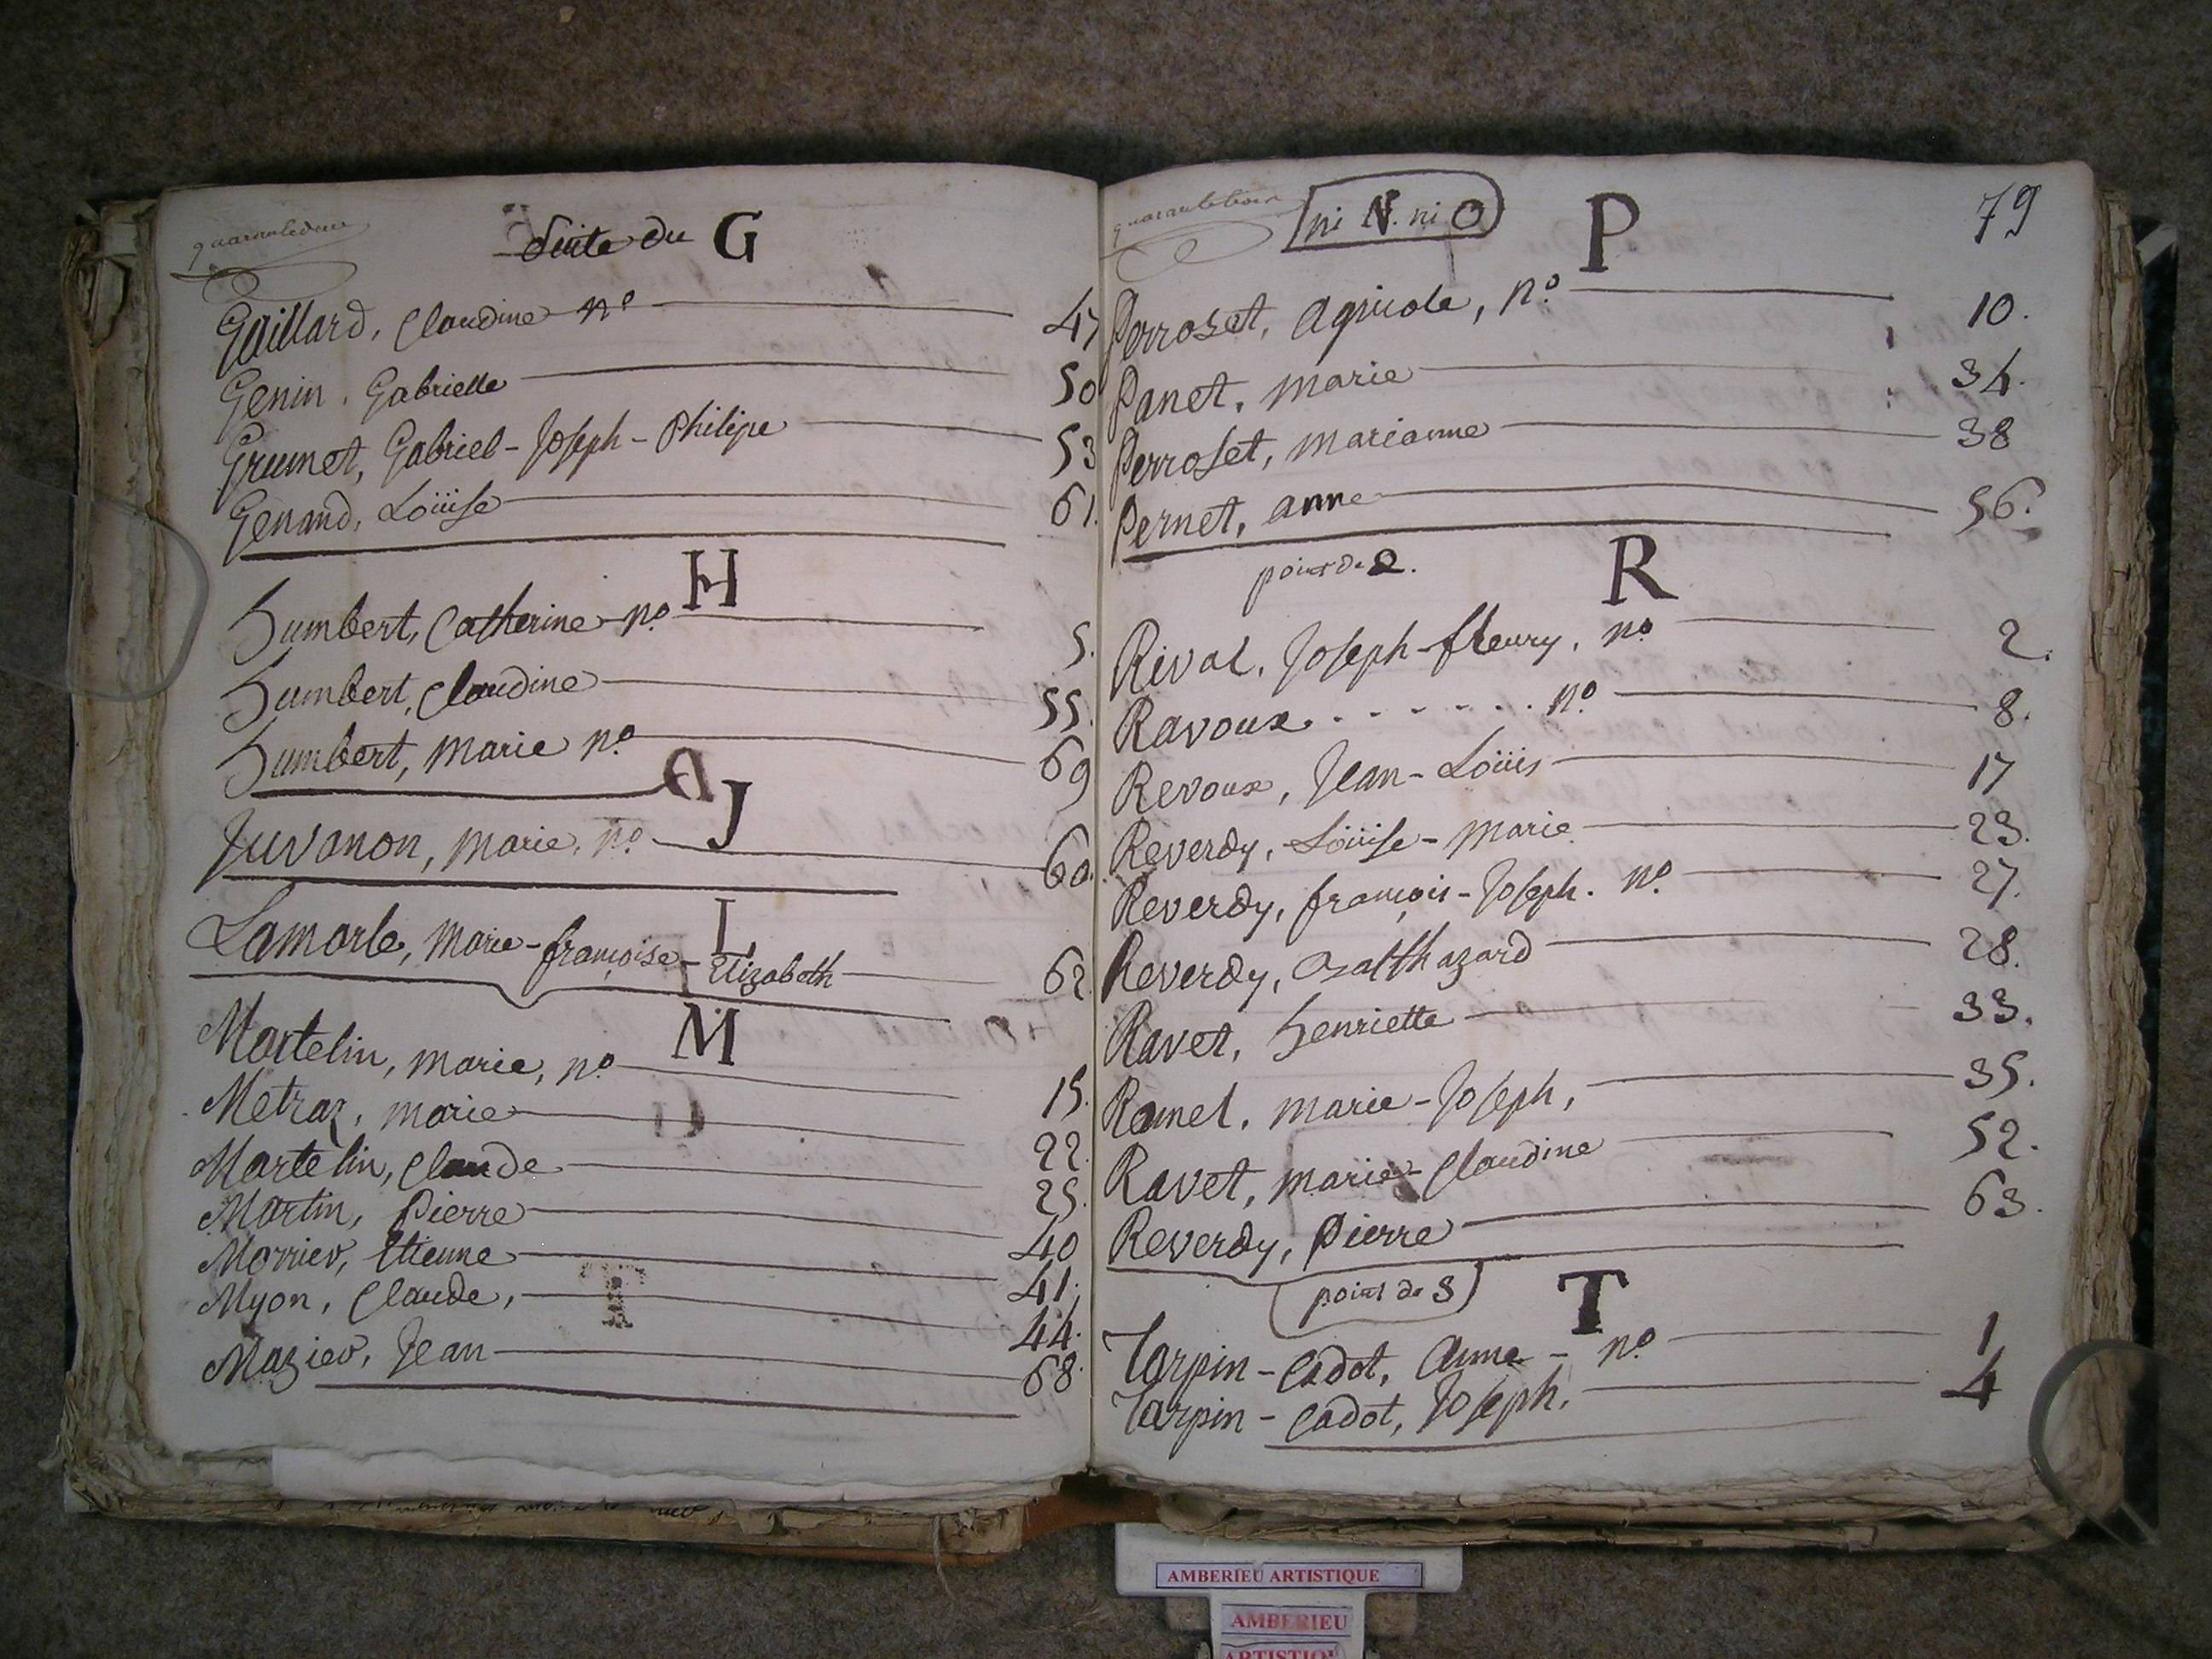 quarantedeux
Suite du G
Gaillard, Claudine n° 47
Genin, Gabrielle 50
Grumet, Gabriel-Joseph-Philipe 53
Genand, Loüise 61.
H
humbert, Catherine n° 5.
humbert, Claudine 55.
humbert, marie n° 69
J
Juvanon, marie, n° 60.
L
Lamorle, marie-françoise-Elizabeth 62
M
Martelin, marie, n° 15.
Metraz, marie 22.
Martelin, Claude 25.
Martin, Pierre 40
Morrier, Etienne 41.
Myon, Claude, 44.
Mazier, Jean 68.
quarantetrois
ni N. ni O
P
79
Perroset, Agricole, n° 10.
Panet, marie 34.
Perroset, marianne 38
Pernet, anne 56.
point de Q.
R
Rival, Joseph-fleury, n° 2.
Ravoux. . . . . . . . n° 8.
Revoux, Jean-Loüis 17
Reverdy, Loüise-marie 23.
Reverdy, françois-Joseph. n° 27.
Reverdy, Balthazard 28.
Ravet, henriette 33.
Ramel, marie-Joseph, 35.
Ravet, marie-Claudine 52.
Reverdy, Pierre 63.
point de S
T
Tarpin-Cadot, Anne - n° 1
Tarpin-Cadot, Joseph, 4
AMBERIEU ARTISTIQUE
AMBERIEU